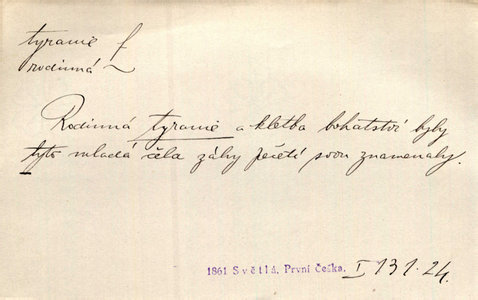 tyranie f
rodinná ~
Rodinná tyranie a kletba bohatství byly
tyto mladá čela záhy pečetí svou znamenaly.
1861 Světlá, První Češka. I 131.24.